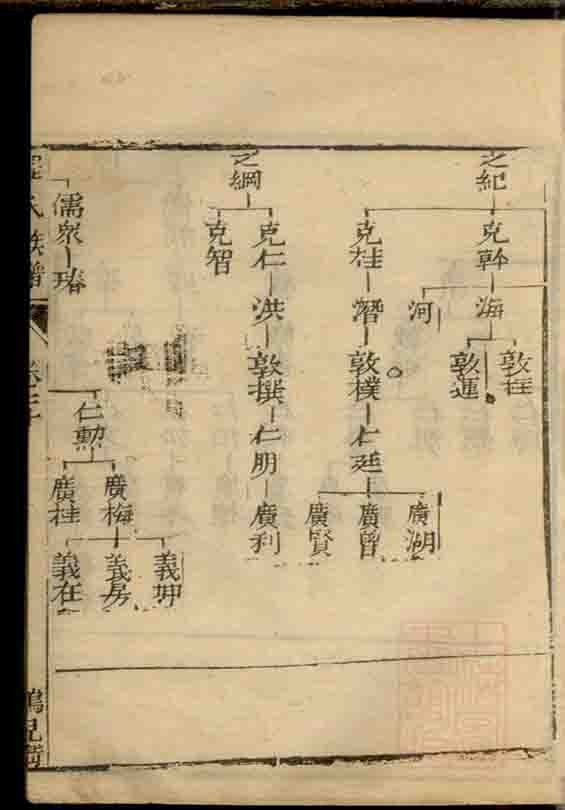 之紀
克幹
海
敦
敦運
河
克桂
潛
敦樸
仁廷
廣湖
廣曾
廣賢
之綱
克仁
洪
敦撰
仁朋
廣利
克智
儒衆
瑃
仁勲
廣梅
義坤
義房
義在
廣桂
氏族譜